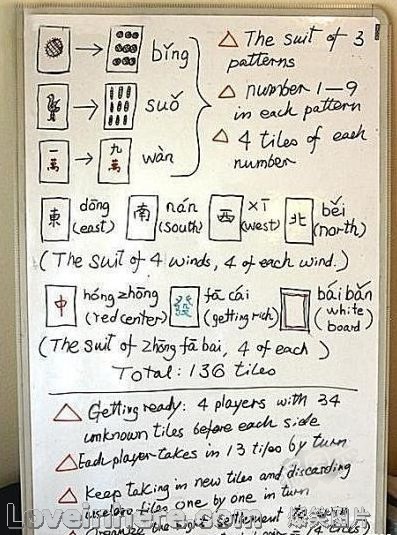 bǐng
suǒ
一萬 九萬 wàn
△ The suit of 3
patterns
△ number 1—9
in each pattern
△ 4 tiles of each
number
東 dōng (east) 南 nán (south) 西 xī (west) 北 běi (north)
(The suit of 4 winds, 4 of each wind.)
中 hóng zhōng (red center) 發 fā cái (getting rich) bái bǎn (white board)
(The suit of zhōng fā bai, 4 of each)
Total: 136 tiles
△ Getting ready: 4 players with 34
unknown tiles before each side
△ Each player takes in 13 tiles by turn
△ Keep taking in new tiles and discarding
useless tiles one by one in turn
the right settlement to win
(14 tiles)